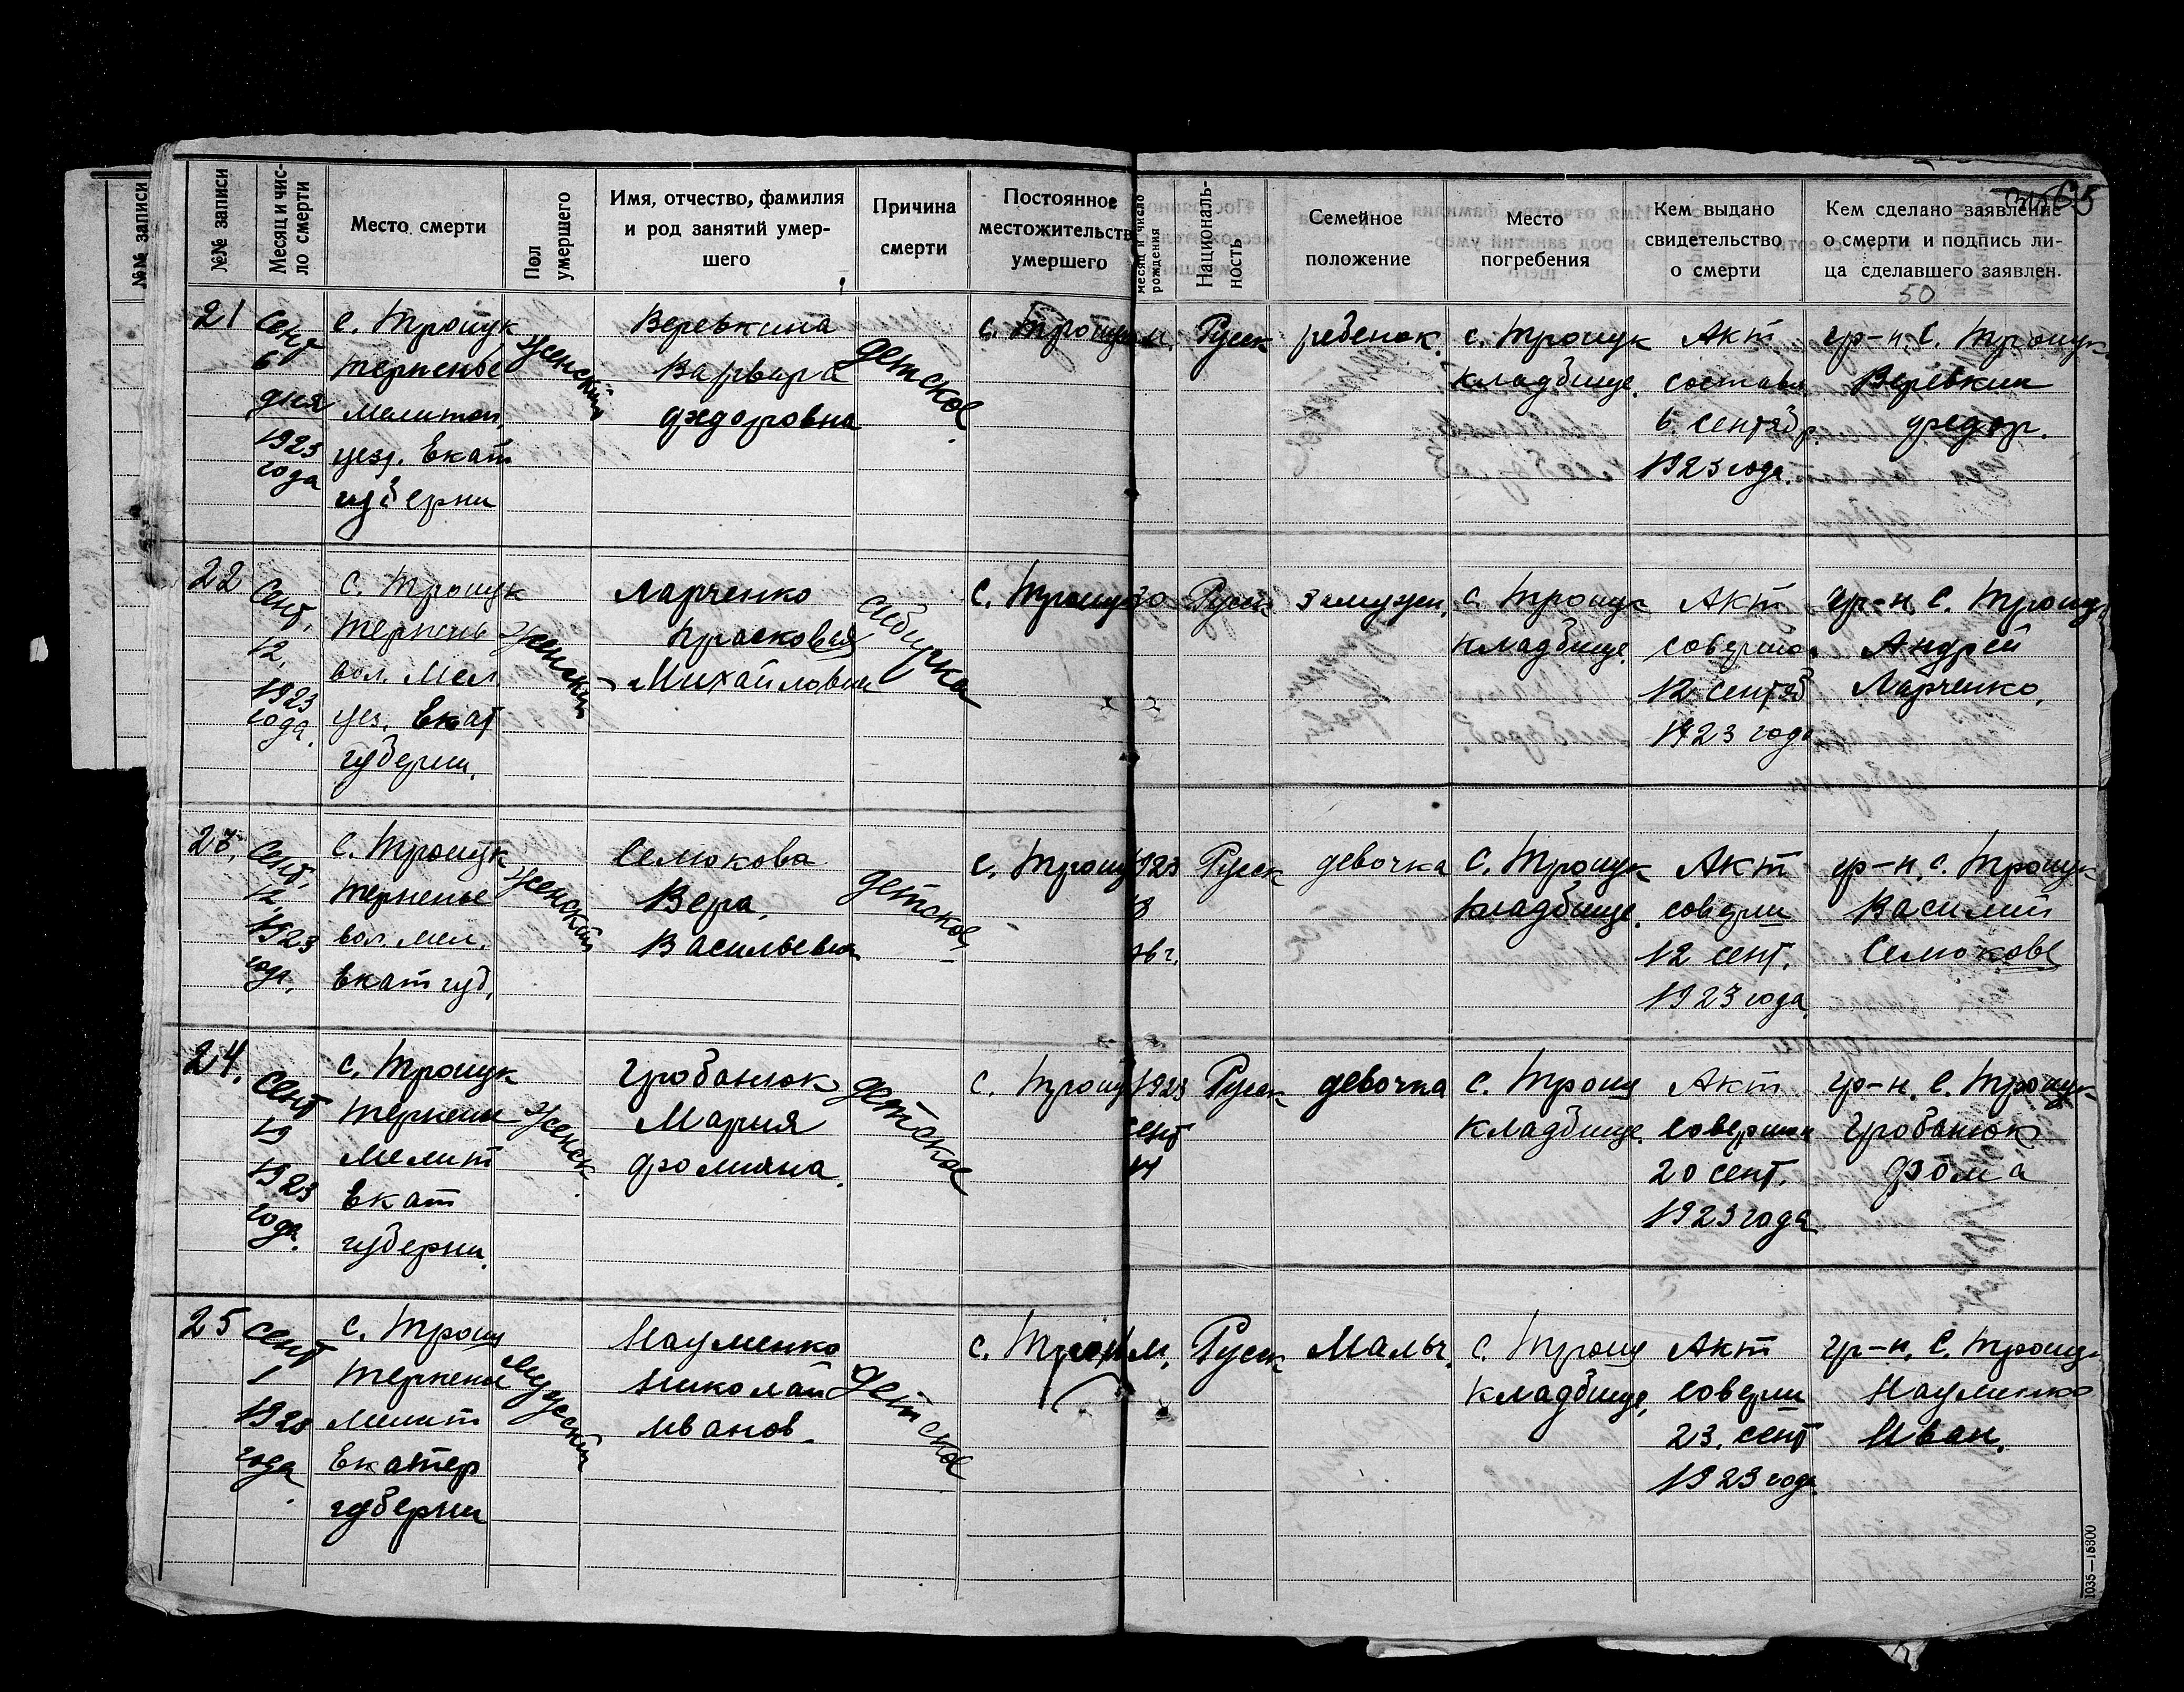 №№ записи
№№ записи
Месяц и чис-
ло смерти
Место смерти
Пол
умершего
Имя, отчество, фамилия
и род занятий умер-
шего
Причина
смерти
Постоянное
местожительств
умершего
месяц и число
рождения
Националь-
ность
Семейное
положение
Место
погребения
Кем выдано
свидетельство
о смерти
Кем сделано заявление
о смерти и подпись ли-
ца сделавшего заявлен.
65
50
21
Сент
6
дня
1923
года
с. Трощук
Терпенье
Мелитоп.
уез. Екат
губерни
женский
Веревкина
Варвара
Федоровна
детское
с. Трощук
м.
Русск
ребенок.
с. Трощук
кладбище.
Акт
составл
6 сентябр.
1923 года.
гр-н. С. Трощук.
Веревкин
Федор.
22
Сент,
12.
1923
года.
с. Трощук
Терпень
вол. Мел
уез. Екат
губерни.
женский
Ларченко
Прасковья
Михайловна
сибирка
С. Трощук
30
Русск
замужем.
с. Трощук
кладбище.
Акт
совершон
12 сентяб
1923 года
гр-н. С. Трощук
Андрей
Ларченко.
23.
Сент.
12.
1923
года.
с. Трощук
Терпенье
вол. Мел.
Екат губ.
женский
Семокова
Вера.
Васильевна
детское
с. Трощ
1923
8
Русск
девочка
С. Трощук
кладбище.
Акт
соверш
12 сент.
1923 года
гр-н. с. Трощук
Василий
Семокове
24.
Сент
19
1923
года.
с. Трощук
Терпени
Мелит
Екат
губерни.
женск.
Гробанюк
Мария
Фомична.
детское
с. Трощу
1923
сент
14
Русск
девочка
с. Трощ
кладбище.
Акт
совершон
20 сент.
1923 года
гр-н. С. Трощук
Гробанюк
Фома
25
Сент
1
1923
года.
с. Трощ
Терпени
Мелит
Екатер
губерни
мужский
Науменко
Николай
Иванов.
детское
с. Трощ
м.
Русск
Мальч.
с. Трощ
кладбище,
Акт
соверш
23. сент
1923 года.
гр-н. С. Трощ.
Науменко
Иван.
1035—15300